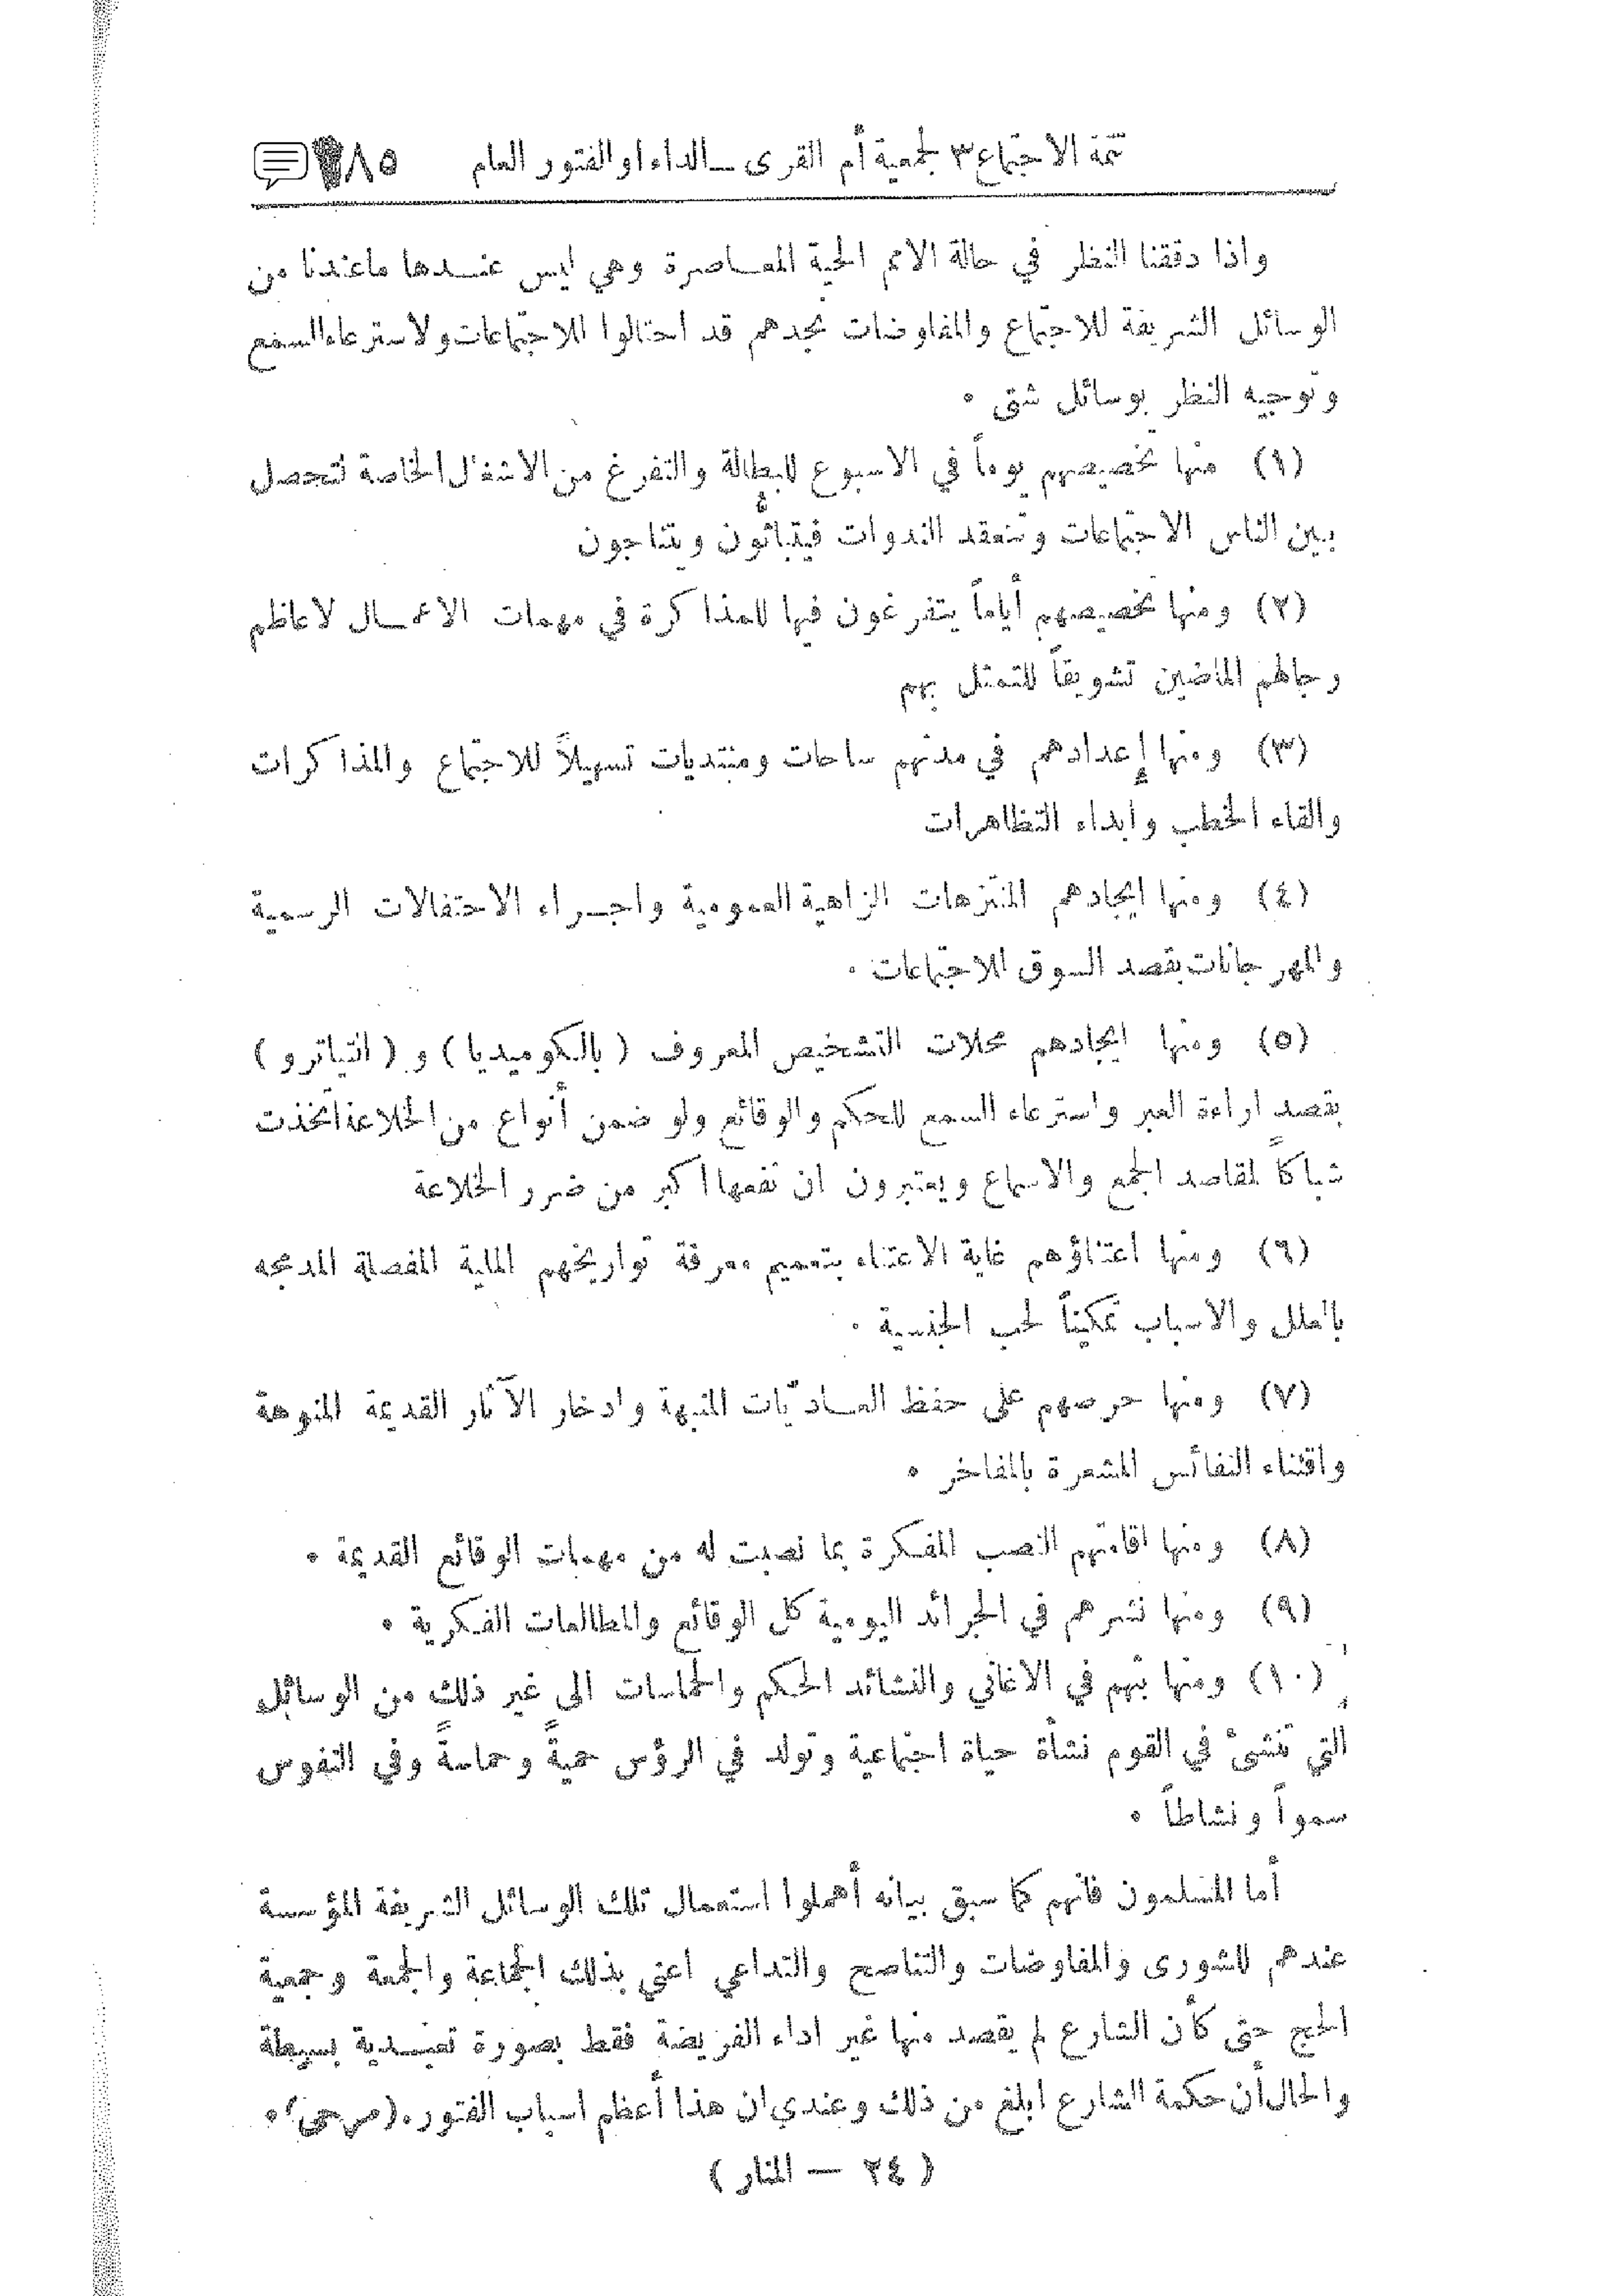 تتمة الاجتماع ٣ لجمعية أم القرى ــ الداء او الفتور العام ١٨٥
واذا دققنا النظر في حالة الامم الحية المعاصرة وهي ليس عندها ماعندنا من
الوسائل الشريفة للاجتماع والمفاوضات نجدهم قد احتالوا للاجتماعات ولاسترعاء السمع
وتوجيه النظر بوسائل شتى ٠
(١) منها تخصيصهم يوماً في الاسبوع للبطالة والتفرغ من الاشغال الخاصة لتحصل
بين الناس الاجتماعات وتنعقد الندوات فيتباثُّون ويتناجون
(٢) ومنها تخصيصهم أياماً يتفرغون فيها للمذاكرة في مهمات الاعمال لاعاظم
رجالهم الماضين تشويقاً للتمثل بهم
(٣) ومنها إعدادهم في مدنهم ساحات ومنتديات تسهيلاً للاجتماع والمذاكرات
والقاء الخطب وابداء التظاهرات
(٤) ومنها ايجادهم المنتزهات الزاهية العمومية واجراء الاحتفالات الرسمية
والمهرجانات بقصد السوق للاجتماعات ٠
(٥) ومنها ايجادهم محلات التشخيص المعروف (بالكوميديا) و (التياترو)
بقصد اراءة العبر واسترعاء السمع للحكم والوقائع ولو ضمن أنواع من الخلاعة اتخذت
شباكاً لمقاصد الجمع والاسماع ويعتبرون ان نفعها اكبر من ضرر الخلاعة
(٦) ومنها اعتناؤهم غاية الاعتناء بتعميم معرفة تواريخهم الملية المفصلة المدمجه
بالعلل والاسباب تمكيناً لحب الجنسية ٠
(٧) ومنها حرصهم على حفظ العاديّات المنبهة وادخار الآثار القديمة المنوهة
واقتناء النفائس المشعرة بالمفاخر ٠
(٨) ومنها اقامتهم النصب المفكرة بما نصبت له من مهمات الوقائع القديمة ٠
(٩) ومنها نشرهم في الجرائد اليومية كل الوقائع والمطالعات الفكرية ٠
(١٠) ومنها بثهم في الاغاني والنشائد الحكم والحماسات الى غير ذلك من الوسائل
التي تنشئ في القوم نشأة حياة اجتماعية وتولد في الرؤس حميةً وحماسةً وفي النفوس
سمواً ونشاطاً ٠
أما المسلمون فانهم كما سبق بيانه أهملوا استعمال تلك الوسائل الشريفة المؤسسة
عندهم للشورى والمفاوضات والتناصح والتداعي اعني بذلك الجماعة والجمعة وجمعية
الحج حتى كأن الشارع لم يقصد منها غير اداء الفريضة فقط بصورة تعبدية بسيطة
والحال أن حكمة الشارع ابلغ من ذلك وعندي ان هذا أعظم اسباب الفتور ٠ (مرحى) ٠
(٢٤ — المنار)